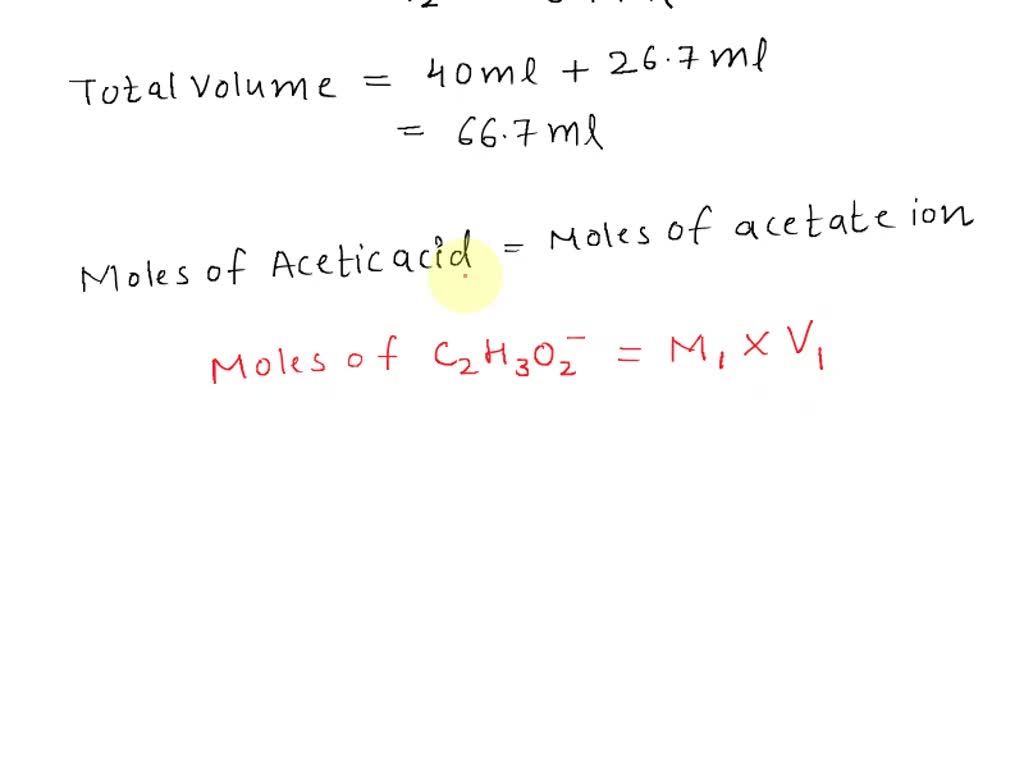 Total Volume = 40ml + 26.7ml
= 66.7ml
Moles of Acetic acid = Moles of acetate ion
Moles of C₂H₃O₂⁻ = M₁ × V₁